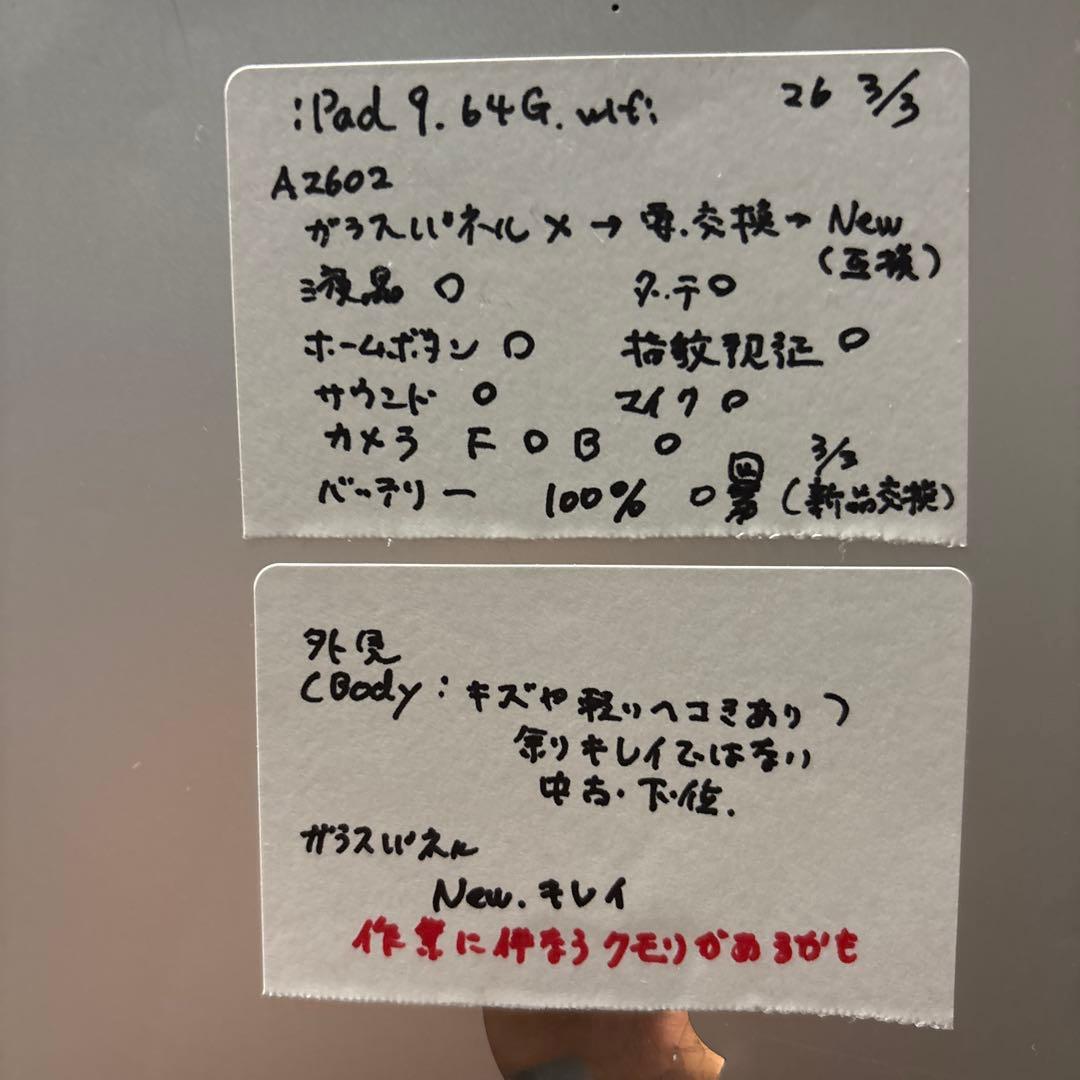 iPad 9. 64G. wifi 26 3/3
A2602
ガラスパネル × → 要.交換 → New
(互換)
液晶 ○ タッチ ○
ホームボタン ○ 指紋認証 ○
サウンド ○ マイク ○
カメラ F ○ B ○ 3/3
バッテリー 100% ○ (新品交換)
外見
(Body : キズや軽いヘコミあり)
余りキレイではない
中古・下位.
ガラスパネル
New. キレイ
作業に伴なうクモリがあるかも